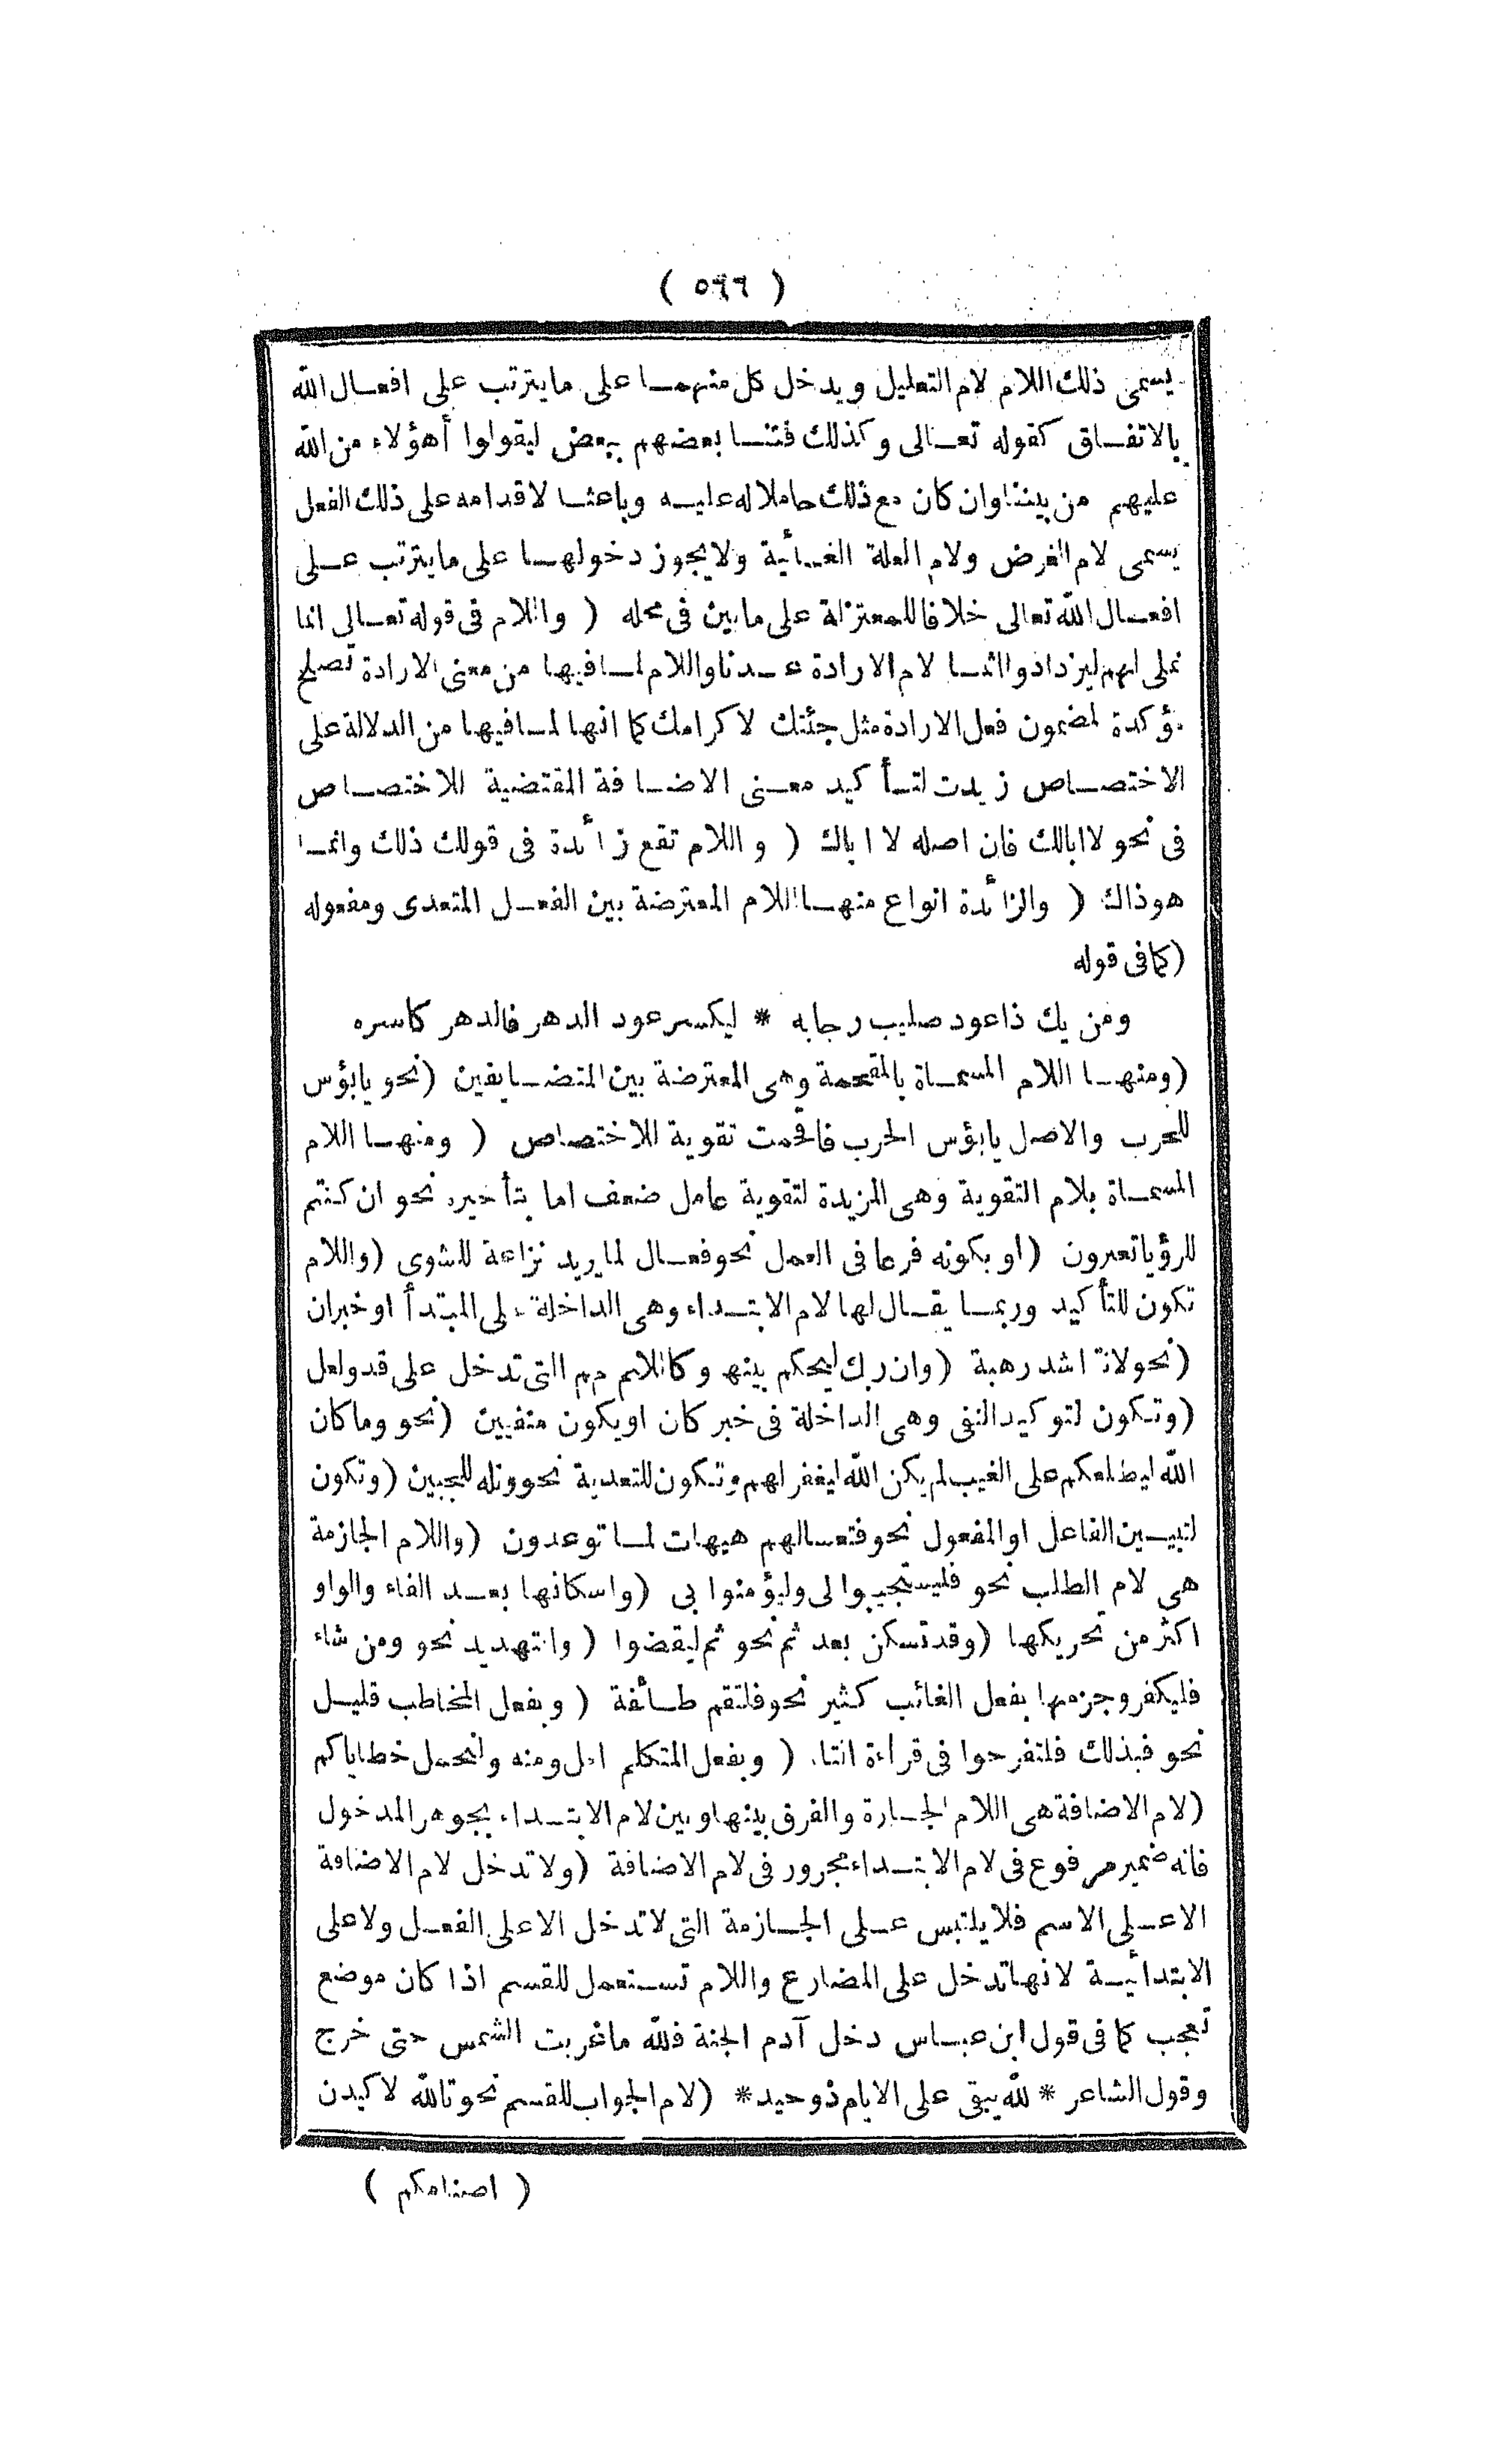 ( ٥٦٦ )
يسمى ذلك اللام لام التعليل ويدخل كل منهما على ما يترتب على افعال الله
بالاتفاق كقوله تعالى وكذلك فتنا بعضهم ببعض ليقولوا أهؤلاء من الله
عليهم من بيننا وان كان مع ذلك حاملا له عليه وباعثا لاقدامه على ذلك الفعل
يسمى لام الغرض ولام العلة الغائية ولا يجوز دخولها على ما يترتب على
افعال الله تعالى خلافا للمعتزلة على ما بين فى محله ( واللام فى قوله تعالى انما
نملى لهم ليزدادوا اثما لام الارادة عندنا واللام لما فيها من معنى الارادة تصلح
مؤكدة لمضمون فعل الارادة مثل جئتك لاكرامك كما انها لما فيها من الدلالة على
الاختصاص زيدت لتأكيد معنى الاضافة المقتضية للاختصاص
فى نحو لا ابالك فان اصله لا اباك ( واللام تقع زائدة فى قولك ذلك وانما
هو ذاك ( والزائدة انواع منها اللام المعترضة بين الفعل المتعدى ومفعوله
(كما فى قوله
ومن يك ذا عود صليب رجا به * ليكسر عود الدهر فالدهر كاسره
(ومنها اللام المسماة بالمقحمة وهى المعترضة بين المتضايفين (نحو يا بؤس
للحرب والاصل يا بؤس الحرب فاقحمت تقوية للاختصاص ( ومنها اللام
المسماة بلام التقوية وهى المزيدة لتقوية عامل ضعف اما بتأخيره نحو ان كنتم
للرؤيا تعبرون (او بكونه فرعا فى العمل نحو فعال لما يريد نزاعة للشوى (واللام
تكون للتأكيد وربما يقال لها لام الابتداء وهى الداخلة على المبتدأ او خبر ان
(نحو لانتم اشد رهبة (وان ربك ليحكم بينهم وكاللام التى تدخل على قد ولعل
(وتكون لتوكيد النفى وهى الداخلة فى خبر كان او يكون منفيين (نحو وما كان
الله ليطلعكم على الغيب لم يكن الله ليغفر لهم وتكون للتعدية نحو وتله للجبين (وتكون
لتبيين الفاعل او المفعول نحو فتعسا لهم هيهات لما توعدون (واللام الجازمة
هى لام الطلب نحو فليستجيبوا لى وليؤمنوا بى (واسكانها بعد الفاء والواو
اكثر من تحريكها (وقد تسكن بعد ثم نحو ثم ليقضوا ( والتهديد نحو ومن شاء
فليكفر وجزمها بفعل الغائب كثير نحو فلتقم طائفة ( وبفعل المخاطب قليل
نحو فبذلك فلتفرحوا فى قراءة التاء ( وبفعل المتكلم اقل ومنه ولنحمل خطاياكم
(لام الاضافة هى اللام الجارة والفرق بينها وبين لام الابتداء بجوهر المدخول
فانه ضمير مرفوع فى لام الابتداء مجرور فى لام الاضافة (ولا تدخل لام الاضافة
الا على الاسم فلا يلتبس على الجازمة التى لا تدخل الا على الفعل ولا على
الابتدائية لانها تدخل على المضارع واللام تستعمل للقسم اذا كان موضع
تعجب كما فى قول ابن عباس دخل آدم الجنة فلله ما غربت الشمس حتى خرج
وقول الشاعر * لله يبقى على الايام ذو حيد * (لام الجواب للقسم نحو تالله لاكيدن
( اصنامكم )